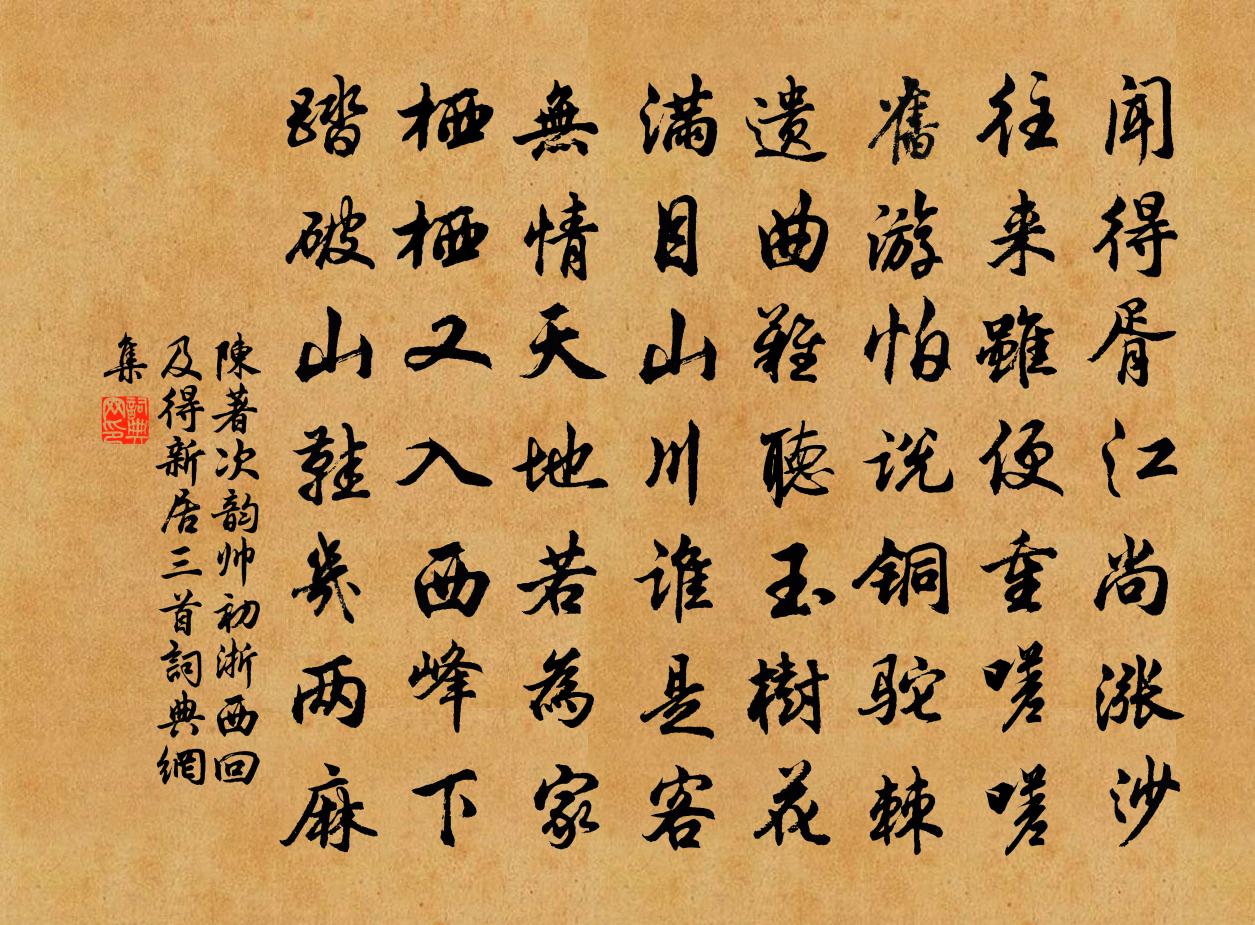 闻得胥江尚漲沙
往来雖便重嗟嗟
舊游怕说铜驼棘
遗曲難聽玉樹花
满目山川谁是客
無情天地若為家
栖栖又入西峰下
踏破山鞋几两麻
陳著次韵帅初浙西回
及得新居三首詞典網
集
詞典網印